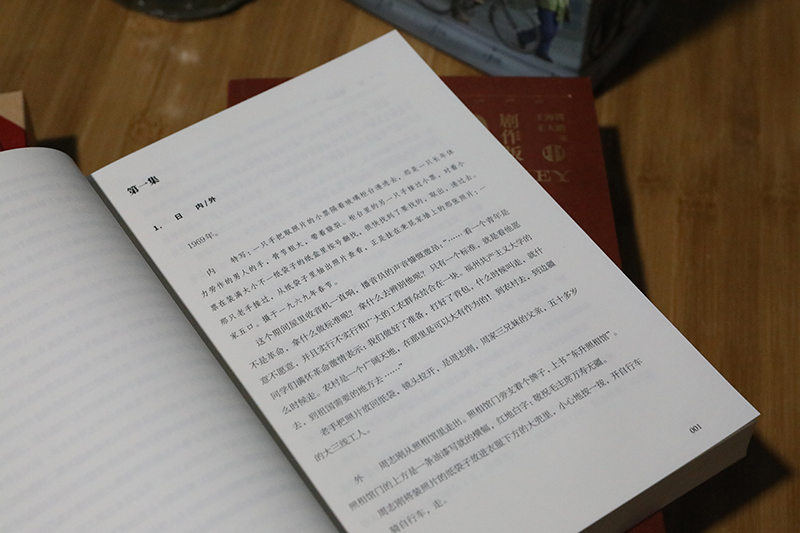 第一集
1. 日 内/外
1969年。
内 特写:一只手把取照片的小票隔着玻璃柜台递进去,那是一只长年体
力劳作的男人的手,骨节粗大,带着皴裂。柜台里的另一只手接过小票,对着小
票在装满大小不一纸袋子的纸盒里按号翻找,很快找到了要找的,取出,递过去。
那只老手接过,从纸袋子里抽出照片查看,正是挂在秉昆家墙上的那张照片,一
家五口。摄于一九六九年春节。
这个期间屋里收音机一直响,播音员的声音慷慨激昂:“……看一个青年是
不是革命,拿什么做标准呢?拿什么去辨别他呢?只有一个标准,就是看他愿
意不愿意,并且实行不实行和广大的工农群众结合在一块。福州共产主义大学的
同学们满怀革命激情表示:我们做好了准备,打好了背包,什么时候叫走,就什
么时候走。农村是一个广阔天地,在那里是可以大有作为的!到农村去,到边疆
去,到祖国需要的地方去……”
老手把照片放回纸袋,镜头拉开,是周志刚,周家三兄妹的父亲,五十多岁
的大三线工人。
外 周志刚从照相馆里走出。照相馆门旁支着个牌子,上书“东升照相馆”。
照相馆门的上方是一条油漆写就的横幅,红地白字:敬祝毛主席万寿无疆。
周志刚将装照片的纸袋子放进衣服下方的大兜里,小心地按一按,开自行车
骑自行车,走。
001
剧作
人世